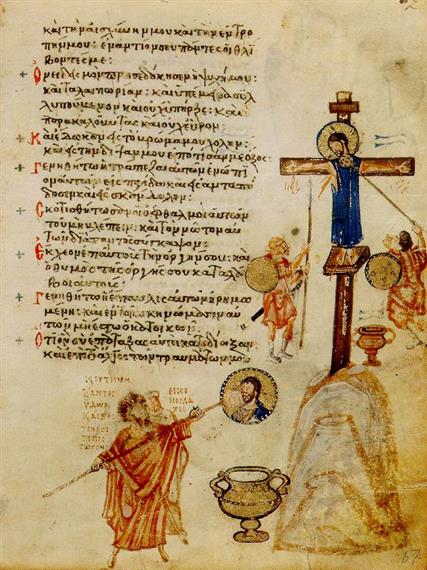 καὶ τὴν αἰσχύνην μου καὶ τὴν ἐντρο
πήν μου· ἐναντίον σου πάντες οἱ θλί
βοντές με·
Ὀνειδισμὸν προσεδόκησεν ἡ ψυχή μου·
καὶ ταλαιπωρίαν· καὶ ὑπέμεινα συλ
λυπούμενον καὶ οὐχ ὑπῆρξε· καὶ
παρακαλοῦντας καὶ οὐχ εὗρον·
Καὶ ἔδωκαν εἰς τὸ βρῶμά μου χολήν·
καὶ εἰς τὴν δίψαν μου ἐπότισάν με ὄξος·
Γενηθήτω ἡ τράπεζα αὐτῶν ἐνώπι
ον αὐτῶν εἰς παγίδα καὶ εἰς ἀνταπό
δοσιν καὶ εἰς σκάνδαλον·
Σκοτισθήτωσαν οἱ ὀφθαλμοὶ αὐτῶν
τοῦ μὴ βλέπειν· καὶ τὸν νῶτον αὐ
τῶν διαπαντὸς σύγκαμψον·
Ἔκχεον ἐπ' αὐτοὺς τὴν ὀργήν σου· καὶ
ὁ θυμὸς τῆς ὀργῆς σου καταλά
βοι αὐτούς·
Γενηθήτω ἡ ἔπαυλις αὐτῶν ἠρημω
μένη· καὶ ἐν τοῖς σκηνώμασιν αὐ
τῶν μὴ ἔστω ὁ κατοικῶν·
Ὅτι ὃν σὺ ἐπάταξας αὐτοὶ κατεδίωξαν·
καὶ ἐπὶ τὸ ἄλγος τῶν τραυμάτων μου
67